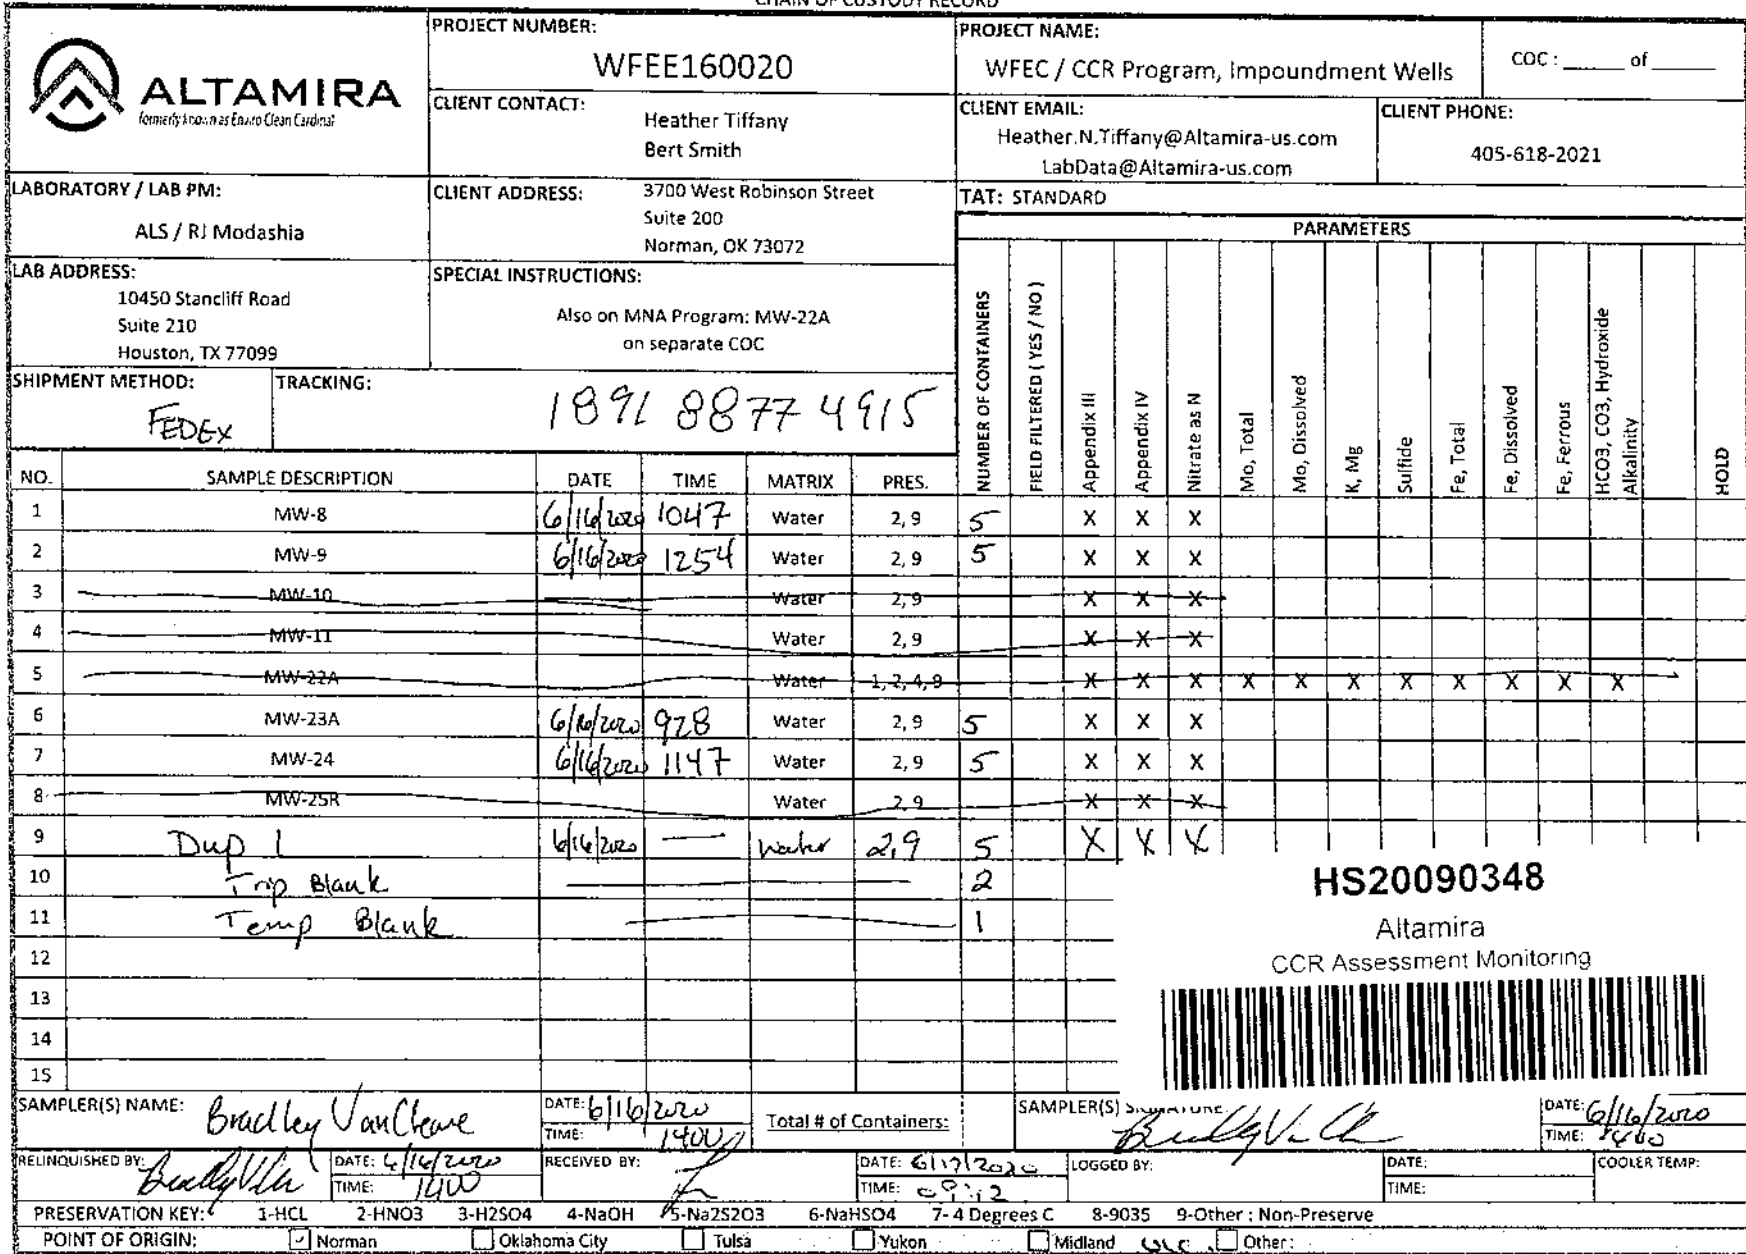 CHAIN OF CUSTODY RECORD
ALTAMIRA
formerly known as Enviro Clean Cardinal
PROJECT NUMBER:
WFEE160020
PROJECT NAME:
WFEC / CCR Program, Impoundment Wells
COC : ______ of ______
CLIENT CONTACT:
Heather Tiffany
Bert Smith
CLIENT EMAIL:
Heather.N.Tiffany@Altamira-us.com
LabData@Altamira-us.com
CLIENT PHONE:
405-618-2021
LABORATORY / LAB PM:
ALS / RJ Modashia
CLIENT ADDRESS:
3700 West Robinson Street
Suite 200
Norman, OK 73072
TAT: STANDARD
PARAMETERS
LAB ADDRESS:
10450 Stancliff Road
Suite 210
Houston, TX 77099
SPECIAL INSTRUCTIONS:
Also on MNA Program: MW-22A
on separate COC
SHIPMENT METHOD:
FEDEX
TRACKING:
1891 8877 4915
NUMBER OF CONTAINERS
FIELD FILTERED ( YES / NO )
Appendix III
Appendix IV
Nitrate as N
Mo, Total
Mo, Dissolved
K, Mg
Sulfide
Fe, Total
Fe, Dissolved
Fe, Ferrous
HCO3, CO3, Hydroxide
Alkalinity
HOLD
NO. SAMPLE DESCRIPTION DATE TIME MATRIX PRES.
1 MW-8 6/16/2020 1047 Water 2, 9 5 X X X
2 MW-9 6/16/2020 1254 Water 2, 9 5 X X X
3 MW-10 Water 2, 9 X X X
4 MW-11 Water 2, 9 X X X
5 MW-22A Water 1, 2, 4, 9 X X X X X X X X X X X
6 MW-23A 6/16/2020 928 Water 2, 9 5 X X X
7 MW-24 6/16/2020 1147 Water 2, 9 5 X X X
8 MW-25R Water 2, 9 X X X
9 Dup 1 6/16/2020 — Water 2,9 5 X X X
10 Trip Blank 2
11 Temp Blank 1
12
13
14
15
HS20090348
Altamira
CCR Assessment Monitoring
SAMPLER(S) NAME: Bradley VanCleave DATE: 6/16/2020 TIME: 1400 Total # of Containers: SAMPLER(S) SIGNATURE: DATE: 6/16/2020 TIME: 1400
RELINQUISHED BY: DATE: 6/16/2020 TIME: 1400 RECEIVED BY: DATE: 6/17/2020 TIME: 09:12 LOGGED BY: DATE: TIME: COOLER TEMP:
PRESERVATION KEY: 1-HCL 2-HNO3 3-H2SO4 4-NaOH 5-Na2S2O3 6-NaHSO4 7- 4 Degrees C 8-9035 9-Other : Non-Preserve
POINT OF ORIGIN: Norman Oklahoma City Tulsa Yukon Midland Other: